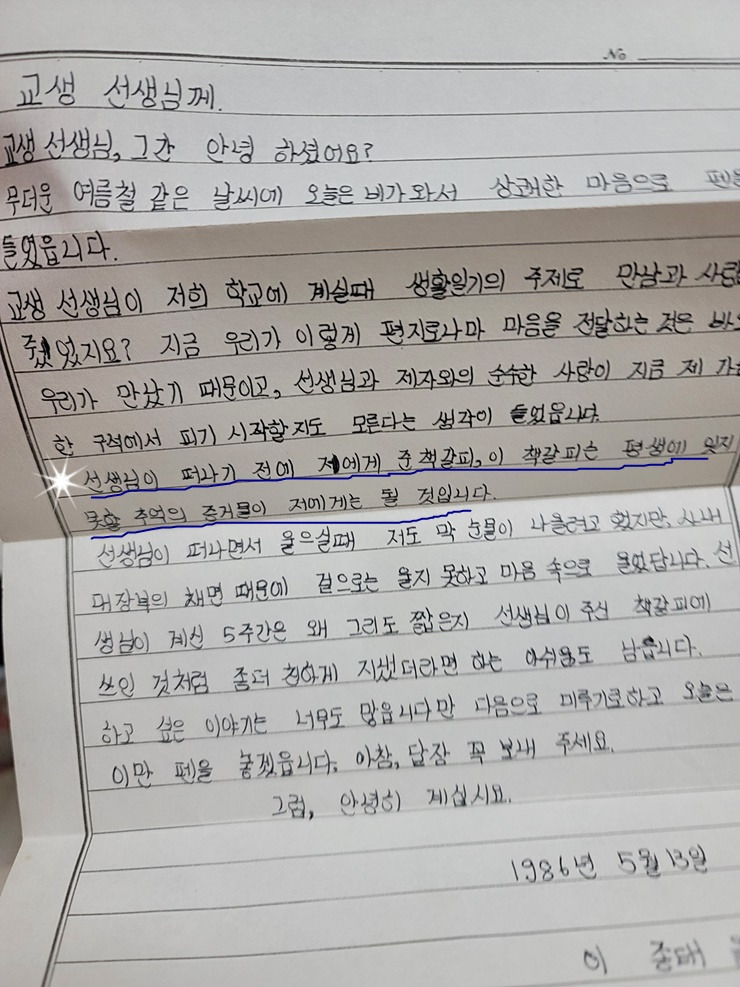 No
교생 선생님께.
교생 선생님, 그간 안녕 하셨어요?
무더운 여름철 같은 날씨에 오늘은 비가 와서 상쾌한 마음으로 펜을
들었읍니다.
교생 선생님이 저희 학교에 계실때 생활일기의 주제로 만남과 사랑
줬었지요? 지금 우리가 이렇게 편지로나마 마음을 전달하는 것은 바로
우리가 만났기 때문이고, 선생님과 제자와의 순수한 사랑이 지금 제 가슴
한 구석에서 피기 시작할지도 모른다는 생각이 들었읍니다.
선생님이 떠나기 전에 저에게 준 책갈피, 이 책갈피는 평생에 잊지
못할 추억의 증거물이 저에게는 될 것입니다.
선생님이 떠나면서 울으실때 저도 막 눈물이 나올려고 했지만, 사내
대장부의 채면 때문에 겉으로는 울지 못하고 마음 속으로 울었답니다. 선
생님이 계신 5주간은 왜 그리도 짧은지 선생님이 주신 책갈피에
쓰인 것처럼 좀더 친하게 지냈더라면 하는 아쉬움도 남습니다.
하고 싶은 이야기는 너무도 많읍니다만 다음으로 미루기로하고 오늘은
이만 펜을 놓겠읍니다. 아참, 답장 꼭 보내 주세요.
그럼, 안녕히 계십시요.
1986년 5월 13일
이 종태